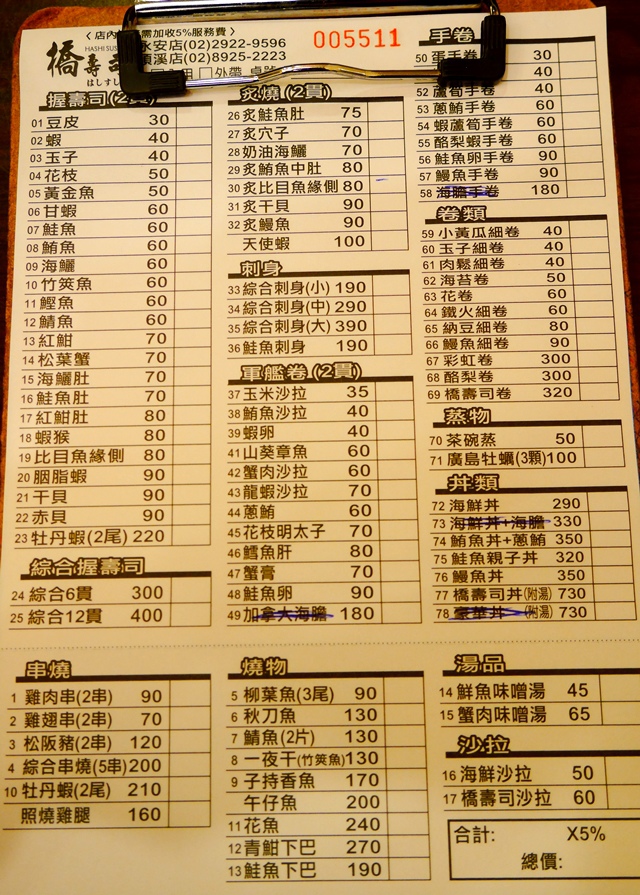 〈店內 需加收5%服務費〉
橋壽司
HASHI SUS
はしすし
永安店(02)2922-9596
頂溪店(02)8925-2223
005511
握壽司(2貫)
01 豆皮 30
02 蝦 40
03 玉子 40
04 花枝 50
05 黃金魚 50
06 甘蝦 60
07 鮭魚 60
08 鮪魚 60
09 海鱺 60
10 竹筴魚 60
11 鰹魚 60
12 鯖魚 60
13 紅魽 70
14 松葉蟹 70
15 海鱺肚 70
16 鮭魚肚 70
17 紅魽肚 80
18 蝦猴 80
19 比目魚緣側 80
20 胭脂蝦 90
21 干貝 90
22 赤貝 90
23 牡丹蝦(2尾) 220
綜合握壽司
24 綜合6貫 300
25 綜合12貫 400
炙燒(2貫)
26 炙鮭魚肚 75
27 炙穴子 70
28 奶油海鱺 70
29 炙鮪魚中肚 80
30 炙比目魚緣側 80
31 炙干貝 90
32 炙鰻魚 90
天使蝦 100
刺身
33 綜合刺身(小) 190
34 綜合刺身(中) 290
35 綜合刺身(大) 390
36 鮭魚刺身 190
軍艦卷(2貫)
37 玉米沙拉 35
38 鮪魚沙拉 40
39 蝦卵 40
41 山葵章魚 60
42 蟹肉沙拉 60
43 龍蝦沙拉 70
44 蔥鮪 60
45 花枝明太子 70
46 鱈魚肝 80
47 蟹膏 70
48 鮭魚卵 90
49 加拿大海膽 180
手卷
50 蛋手卷 30
40
52 蘆筍手卷 40
53 蔥鮪手卷 60
54 蝦蘆筍手卷 60
55 酪梨蝦手卷 60
56 鮭魚卵手卷 90
57 鰻魚手卷 90
58 海膽手卷 180
卷類
59 小黃瓜細卷 40
60 玉子細卷 40
61 肉鬆細卷 40
62 海苔卷 50
63 花卷 60
64 鐵火細卷 60
65 納豆細卷 80
66 鰻魚細卷 90
67 彩虹卷 300
68 酪梨卷 300
69 橋壽司卷 320
蒸物
70 茶碗蒸 50
71 廣島牡蠣(3顆) 100
丼類
72 海鮮丼 290
73 海鮮丼+海膽 330
74 鮪魚丼+蔥鮪 350
75 鮭魚親子丼 320
76 鰻魚丼 350
77 橋壽司丼(附湯) 730
78 豪華丼(附湯) 730
串燒
1 雞肉串(2串) 90
2 雞翅串(2串) 70
3 松阪豬(2串) 120
4 綜合串燒(5串) 200
10 牡丹蝦(2尾) 210
照燒雞腿 160
燒物
5 柳葉魚(3尾) 90
6 秋刀魚 130
7 鯖魚(2片) 130
8 一夜干(竹筴魚) 130
9 子持香魚 170
午仔魚 200
11 花魚 240
12 青魽下巴 270
13 鮭魚下巴 190
湯品
14 鮮魚味噌湯 45
15 蟹肉味噌湯 65
沙拉
16 海鮮沙拉 50
17 橋壽司沙拉 60
合計: X5%
總價: